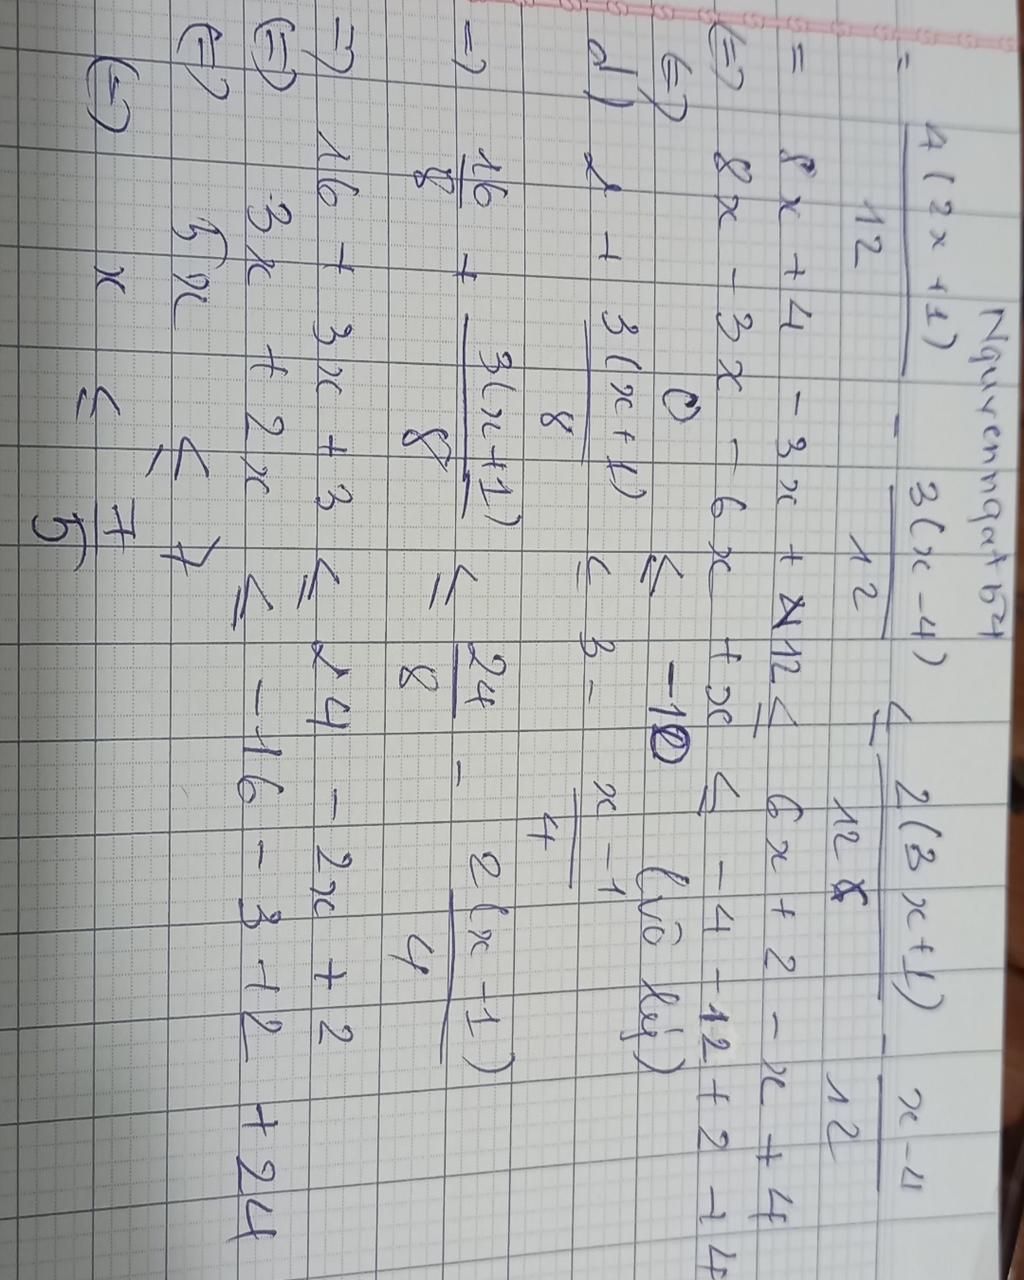 Nguyenngat54
= 4(2x+1)/12 - 3(x-4)/12 ≤ 2(3x+1)/12 - x-4/12
= 8x+4-3x+12 ≤ 6x+2-x+4
(=) 8x-3x-6x+x ≤ -4-12+2+4
(=) 0 ≤ -10 (vô lý)
d) 2 + 3(x+1)/8 ≤ 3 - x-1/4
=) 16/8 + 3(x+1)/8 ≤ 24/8 - 2(x-1)/4
=) 16+3x+3 ≤ 24-2x+2
(=) 3x+2x ≤ -16-3+2+24
(=) 5x ≤ 7
(=) x ≤ 7/5